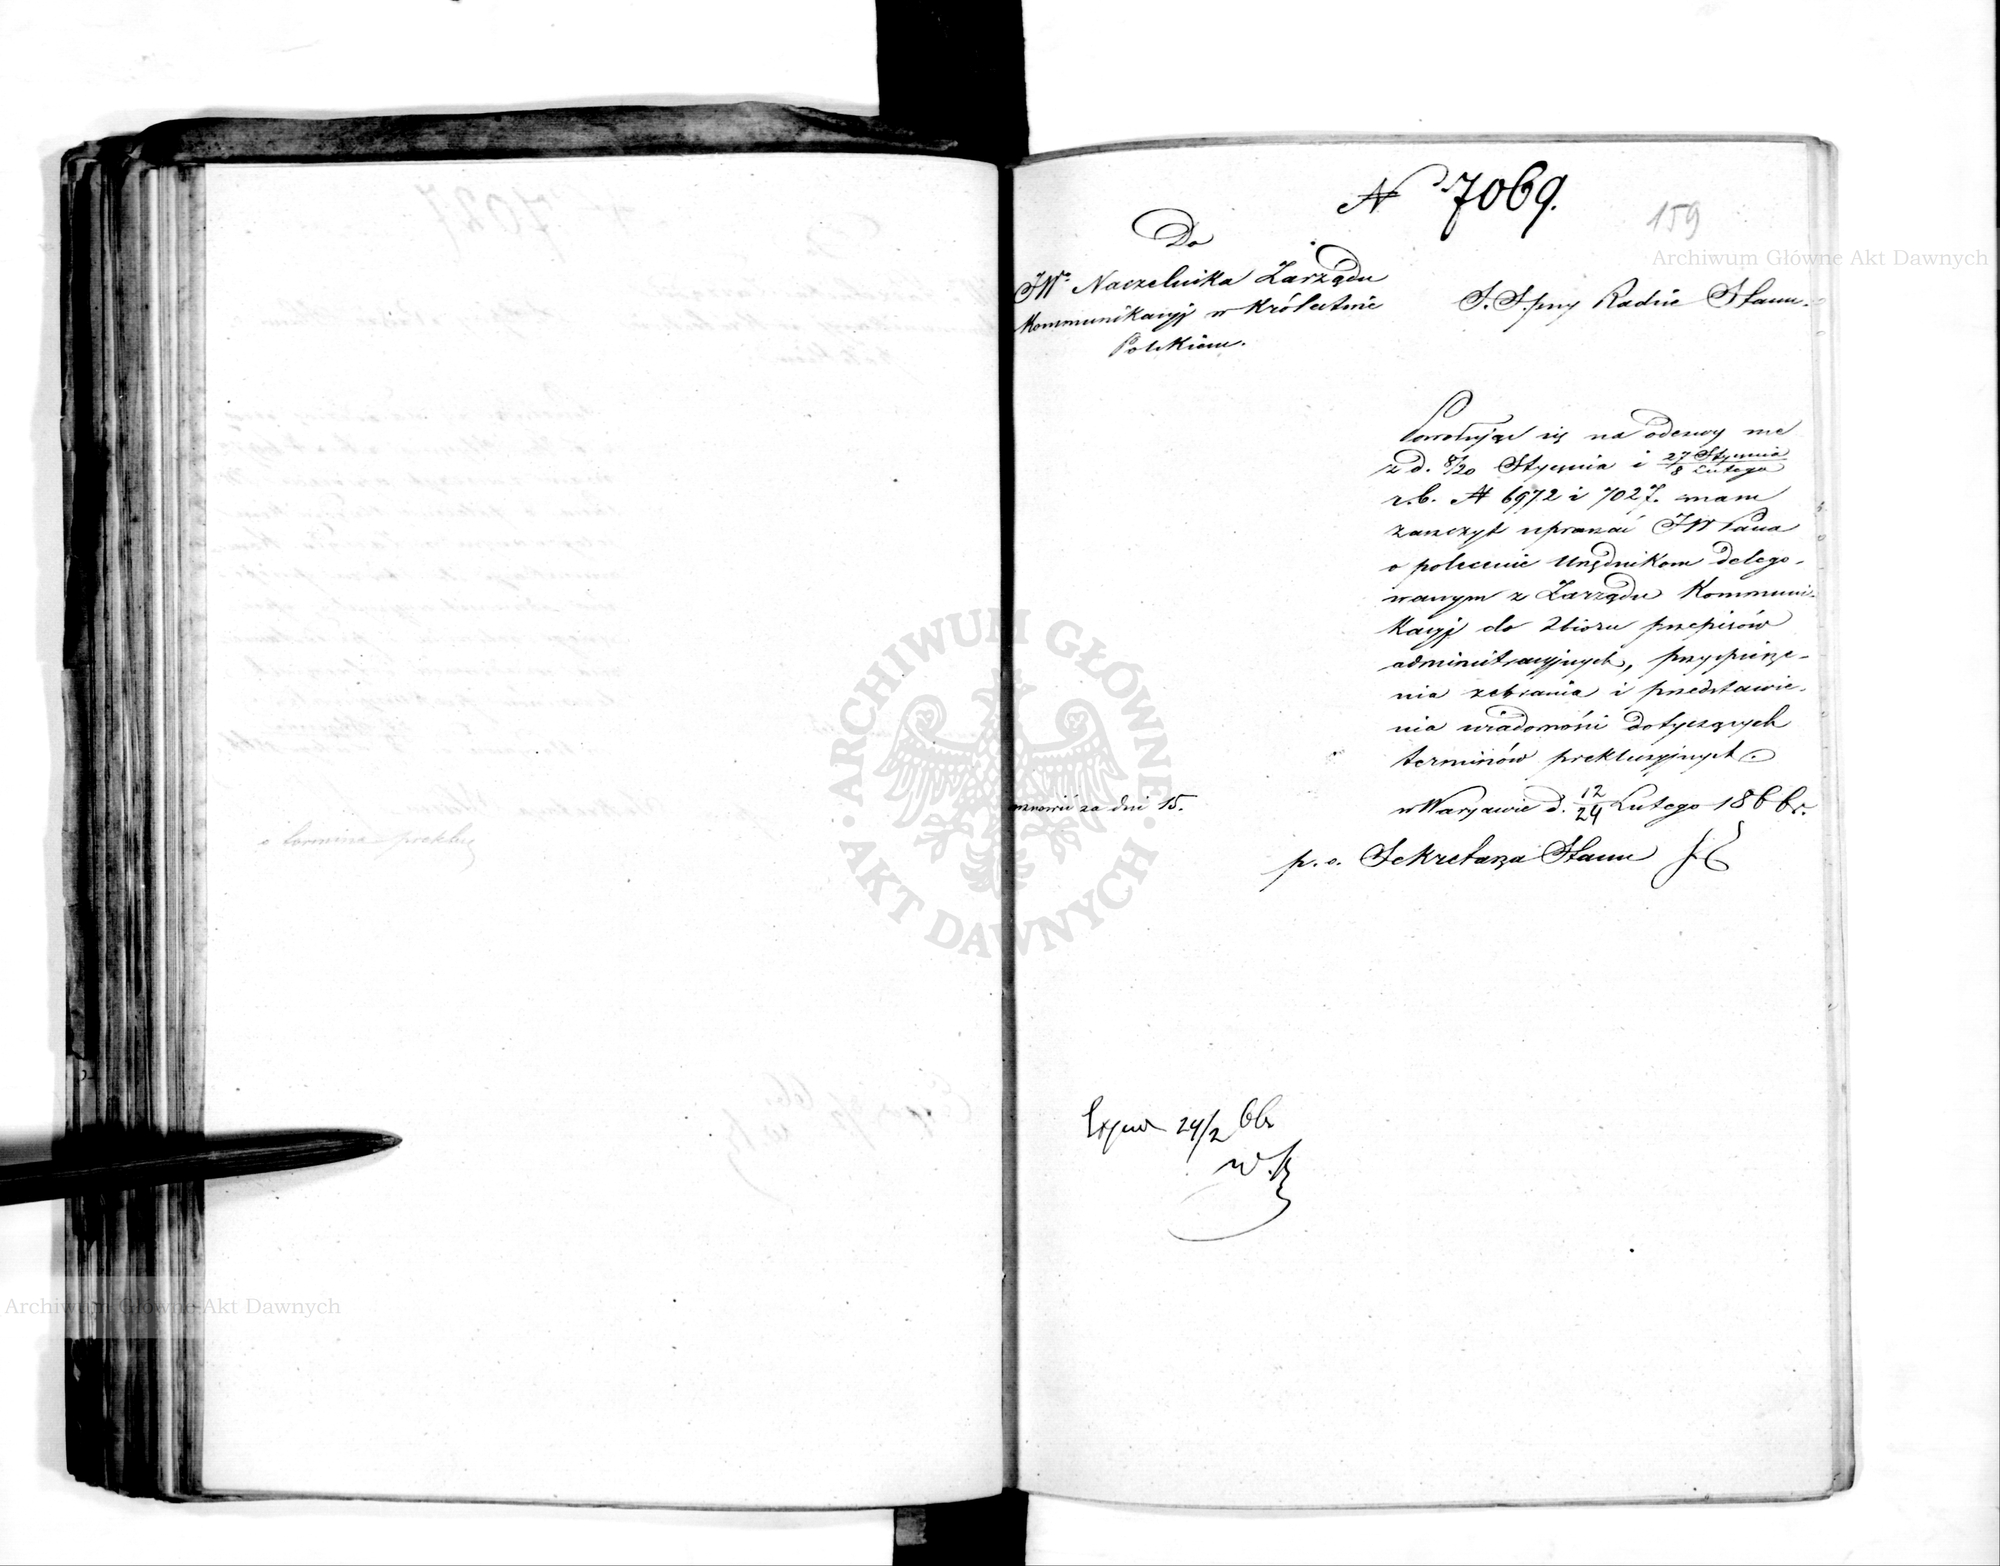 o termina preklu
Archiwum Główne Akt Dawnych
ARCHIWUM GŁÓWNE
AKT DAWNYCH
N 7069.
159
Archiwum Główne Akt Dawnych
Do
JW. Naczelnika Zarządu
Kommunikacyj w Królestwie
Polskiem.
S. Spny Radca Stanu.
Powołując się na odezwy me
z d. 8/20 Stycznia i 27 Stycznia/8 Lutego
r.b. N 6972 i 7027. mam
zaszczyt upraszać JW Pana
o polecenie Urzędnikom delego-
wanym z Zarządu Kommuni-
kacyj do Zbioru przepisów
administracyjnych, przyspiesze-
nia zebrania i przedstawie-
nia wiadomości dotyczących
terminów prekluzyjnych.
wznowić za dni 15.
w Warszawie d. 12/24 Lutego 1866 r.
p. o. Sekretarza Stanu
24/2 66r